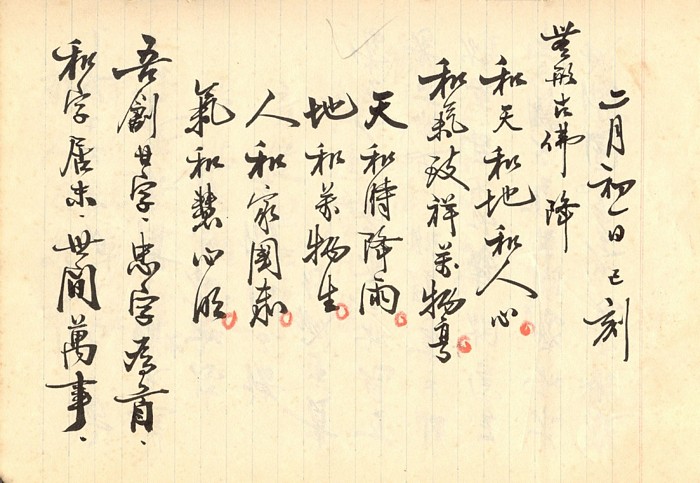 二月初一日巳刻
無極古佛 降
和天和地和人心
和氣致祥萬物亨
天和時降雨
地和萬物生
人和家國泰
氣和慧心明
吾創廿字、忠字為首、
和字居末、世間萬事、